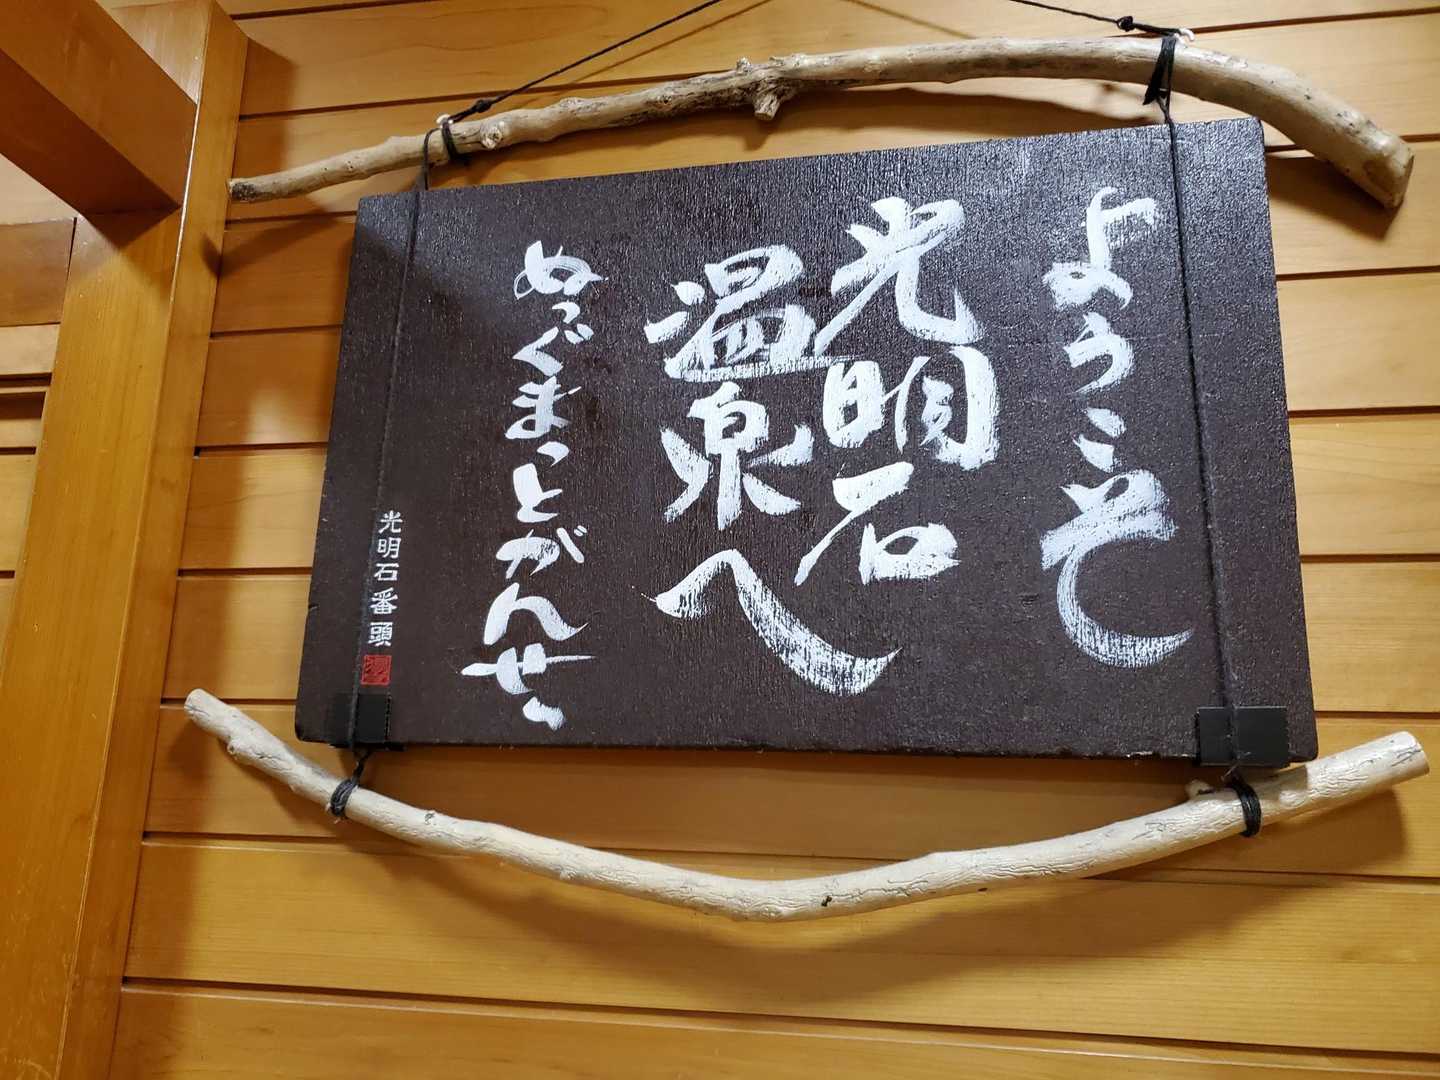 ようこそ
光明石
温泉へ
ぬっぐまっとがんせ
光明石番頭